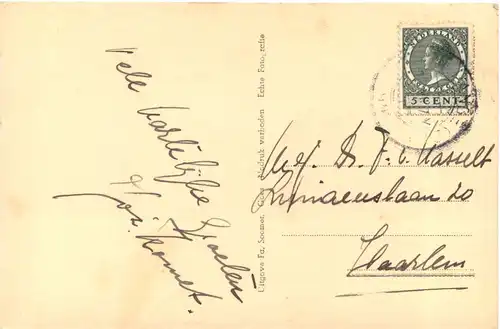 Vele hartelijke
groeten
Uitgave Fa. Soomer. Nadruk verboden Echte Fotografie
NEDERLAND
5 CENT
Mej. Dr. F. v. Hasselt
Linnaeuslaan 20
Haarlem